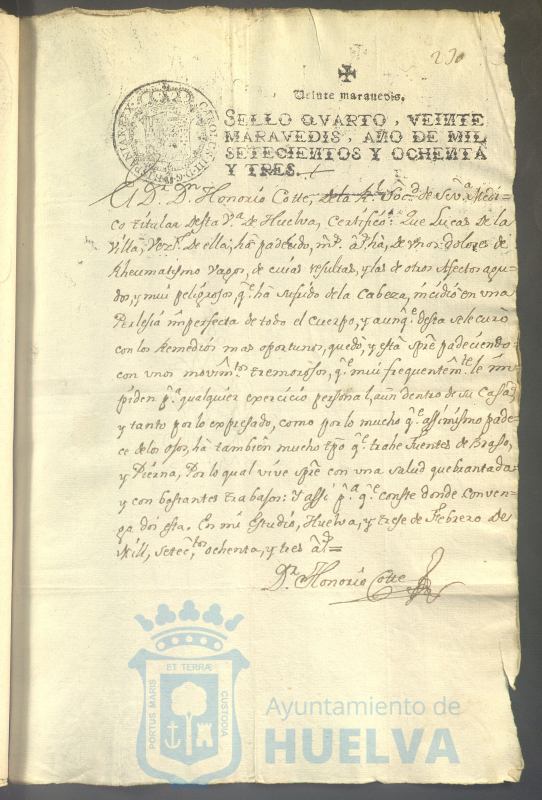 230
Veinte maravedis.
SELLO QVARTO, VEINTE
MARAVEDIS, AÑO DE MIL
SETECIENTOS Y OCHENTA
Y TRES.
El Dr. Dn. D. Honorio Cotte, de la Rl. Socd. de Seva. Medi-
co titular desta Va. de Huelva, Certifico: Que Lucas de la
Villa, Vezo. de ella, ha padecido, ms. as. ha, de unos dolores de
Rheumatismo vagos, de cuias resultas, y las de otros Afectos agu-
dos, y mui peligrosos, qe. ha sufrido de la Cabeza, incidió en una
Perlesia imperfecta de todo el cuerpo, y aunqe. desta se le curó
con los Remedios mas oportunos, quedó, y está spre. padeciendo
con unos movimtos. tremorosos, qe. mui frequentemte. le im-
piden pa. qualquier exercicio personal, aun dentro de su Casa,
y tanto por lo expresado, como por lo mucho qe. assimismo pade-
ce de los ojos, ha tambien mucho tpo. qe. trahe fuentes de Braso,
y Pierna, Por lo qual vive spre. con una salud quebrantada,
y con bastantes trabajos: Y assi pa. qe. conste donde conven-
ga doi esta. En mi Estudio, Huelva, y trese de Febrero de
Mill, Setectos. ochenta, y tres as.=
Dr. Honorio Cotte
PORTUS MARIS
ET TERRÆ
CUSTODIA
Ayuntamiento de
HUELVA